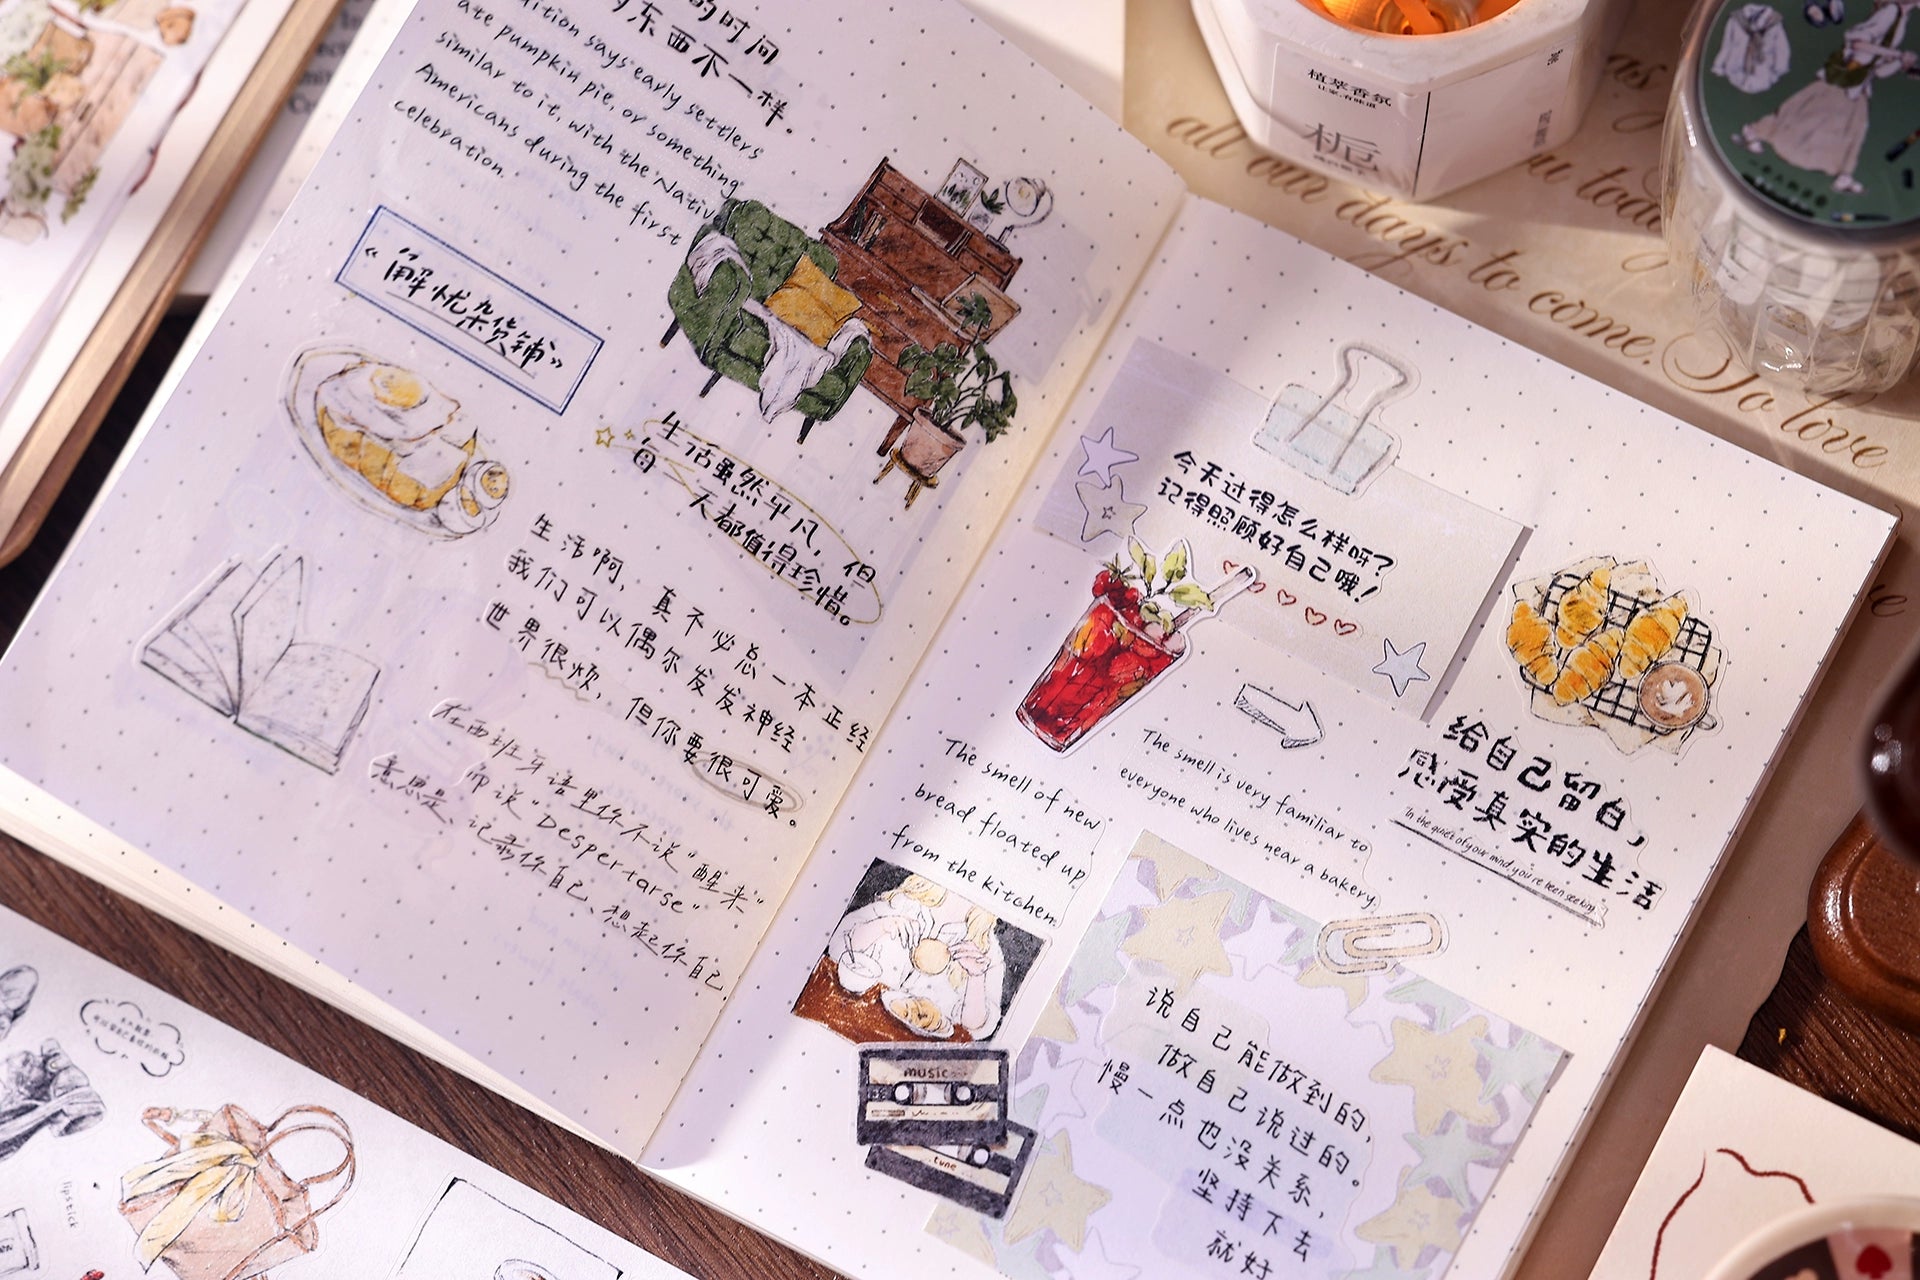 的时间
的东西不一样。
dition says early settlers
ate pumpkin pie, or something
similar to it, with the Nativ
Americans during the first
celebration.
《解忧杂货铺》
生活虽然平凡，但
每一天都值得珍惜。
生活啊，真不必总一本正经
我们可以偶尔发发神经
世界很烦，但你要很可爱。
在西班牙语里你不说“醒来”
而说“Despertarse”
意思是、记录你自己、想起你自己.
今天过得怎么样呀？
记得照顾好自己哦！
The smell of new
bread floated up
from the kitchen.
The smell is very familiar to
everyone who lives near a bakery.
给自己留白，
感受真实的生活
In the quiet of your mind, you've been seeking.
music
tune
说自己能做到的，
做自己说过的。
慢一点也没关系，
坚持下去
就好
植萃香氛
让家，有味道
栀
as
all our days to come. To love
u toda
lipstick